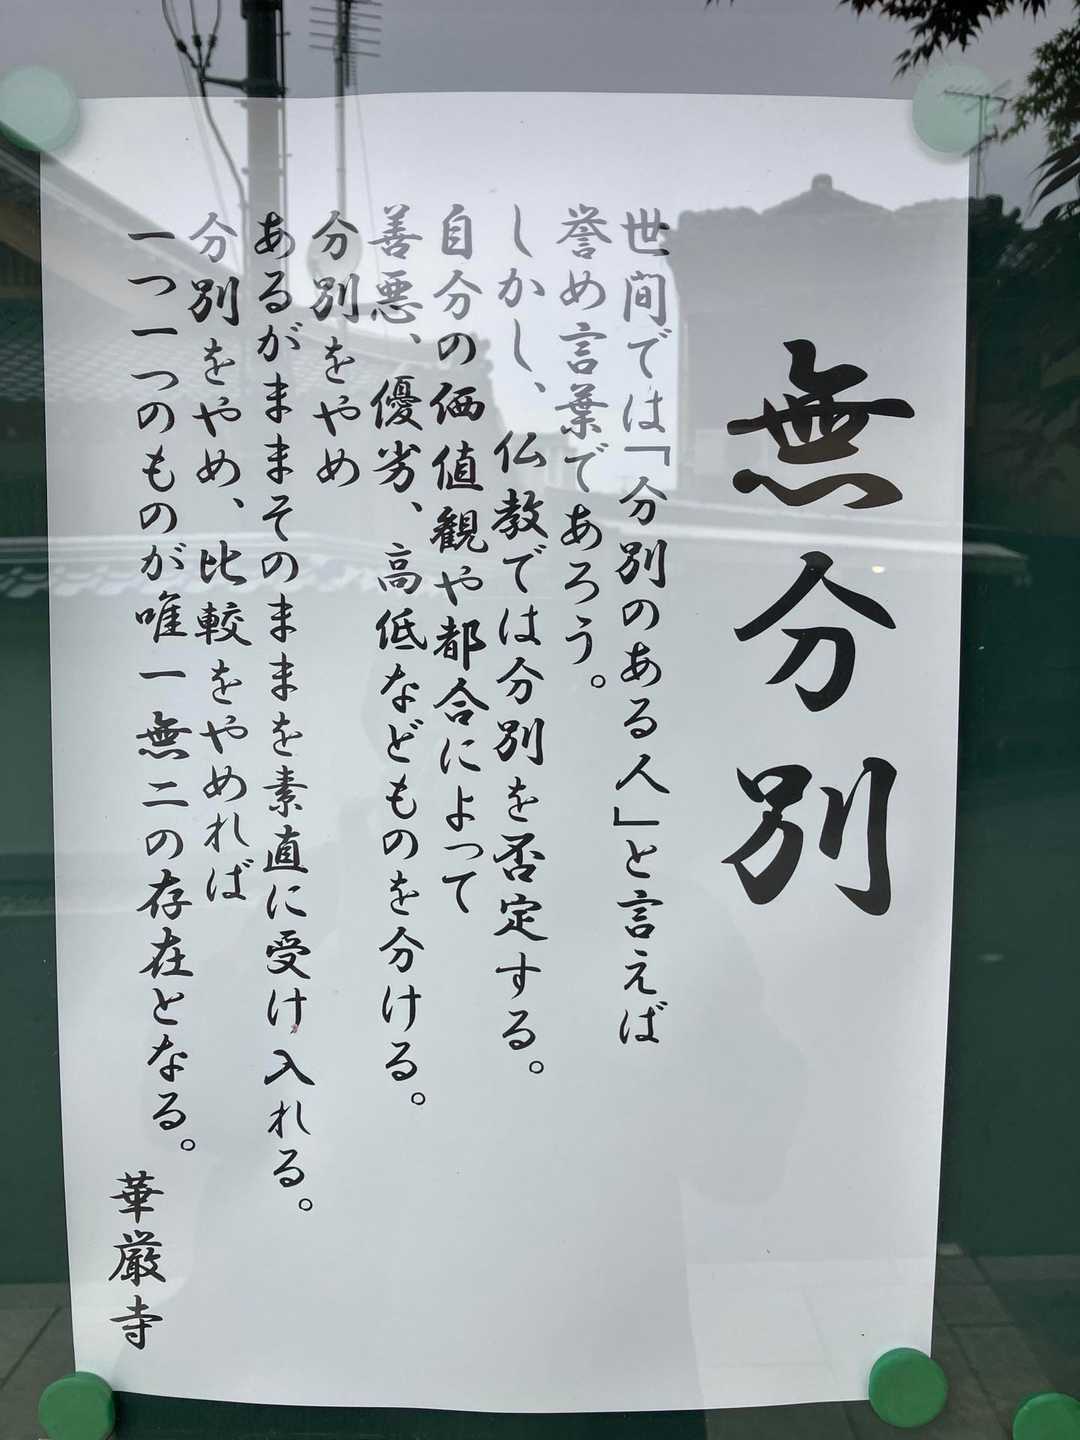 無分別
世間では「分別のある人」と言えば
誉め言葉であろう。
しかし、仏教では分別を否定する。
自分の価値観や都合によって
善悪、優劣、高低などものを分ける。
分別をやめ
あるがままそのままを素直に受け入れる。
分別をやめ、比較をやめれば
一つ一つのものが唯一無二の存在となる。
華厳寺